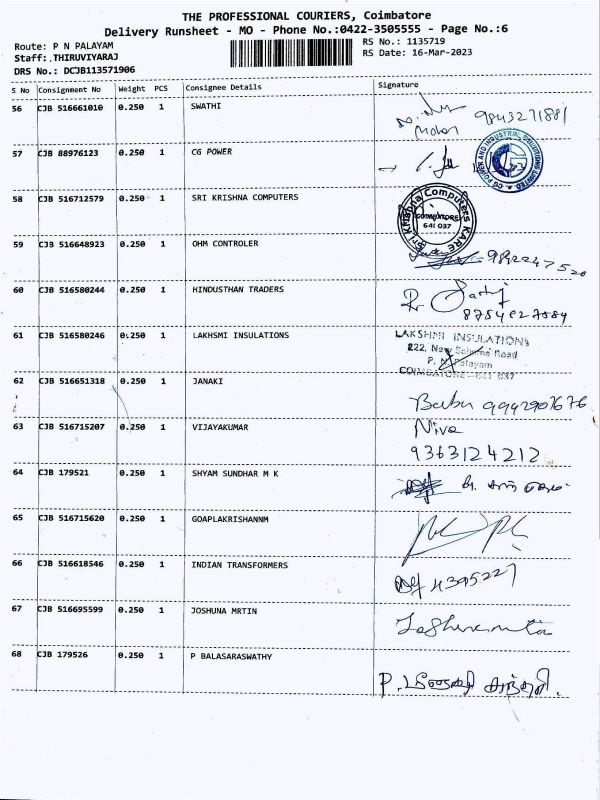 THE PROFESSIONAL COURIERS, Coimbatore
Delivery Runsheet - MO - Phone No.:0422-3505555 - Page No.:6
Route: P N PALAYAM
Staff: THIRUVIYARAJ
DRS No.: DCJB113571906
RS No.: 1135719
RS Date: 16-Mar-2023
S No Consignment No Weight PCS Consignee Details Signature
56 CJB 516661010 0.250 1 SWATHI
9843271881
57 CJB 88976123 0.250 1 CG POWER
CG POWER AND INDUSTRIAL SOLUTIONS LIMITED
58 CJB 516712579 0.250 1 SRI KRISHNA COMPUTERS
Sri Krishna Computers KARE
COIMBATORE
641 037
59 CJB 516648923 0.250 1 OHM CONTROLER
60 CJB 516580244 0.250 1 HINDUSTHAN TRADERS
61 CJB 516580246 0.250 1 LAKHSMI INSULATIONS
LAKSHMI INSULATIONS
222, New Scheme Road
P. N. Palayam
COIMBATORE - 641 037
62 CJB 516651318 0.250 1 JANAKI
Babu
63 CJB 516715207 0.250 1 VIJAYAKUMAR
Niva
9363124212
64 CJB 179521 0.250 1 SHYAM SUNDHAR M K
65 CJB 516715620 0.250 1 GOAPLAKRISHANNM
66 CJB 516618546 0.250 1 INDIAN TRANSFORMERS
4395227
67 CJB 516695599 0.250 1 JOSHUNA MRTIN
68 CJB 179526 0.250 1 P BALASARASWATHY